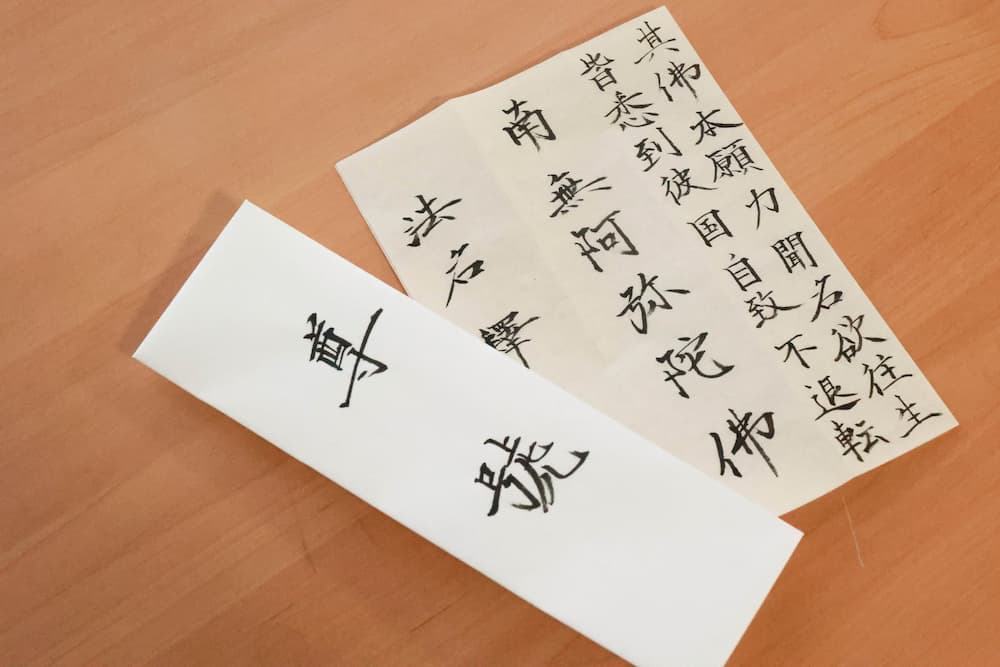 其佛本願力聞名欲往生
皆悉到彼国自致不退転
南無阿弥陀佛
法名釋
尊號